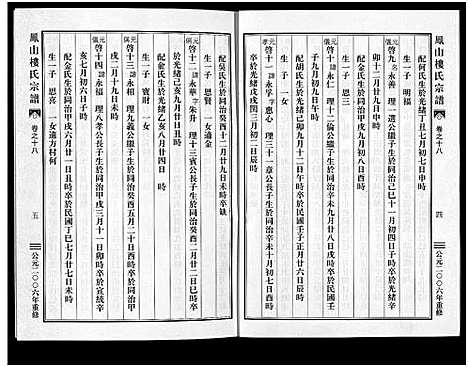 鳳山樓氏宗譜
卷之十八
四
公元二〇〇六年重修
配何氏生於光緒丁丑七月初七日申時
生一子 明福
啓九 永善 理一選公繼子生於同治己巳十一月初四日子時卒於光緒辛
卯十二月廿九日申時
配金氏生於同治甲戌九月初八日酉時
啓十 諱永仁 理十二倫公繼子生於同治壬申九月廿八日戌時卒於民國壬
子九月初九日午時
配胡氏生於光緒 卒於民國壬子正月廿八日戌時
生一子 一女
啓十一 諱永孚 字惠心 理三十一章公長子生於同治癸酉三月廿九日亥時
卒於光緒 三月初二日辰時
配吳氏生於同治癸酉十二月廿九日未時卒缺
生一子 恩賢 一女適金
啓十二 諱永華 字朱升 理十三賓公長子生於同治癸酉二月廿二日巳時卒
於光緒乙亥九月廿日丑時
配金氏生於光緒乙亥八月廿四日 時
生一子 寶財 一女
啓十三 諱永福 理九義公繼子生於同治癸酉六月二十日酉時卒於同治甲
戌二月十九日未時
啓十四 諱永橋 理八孝公長子生於同治甲戌三月十一日卯時卒於宣統辛
亥七月初六日子時
配金氏生於同治甲戌六月廿一日丑時卒於民國丁巳七月廿七日未時
生一子 思喜 一女適方村何
鳳山樓氏宗譜
卷之十八
五
公元二〇〇六年重修